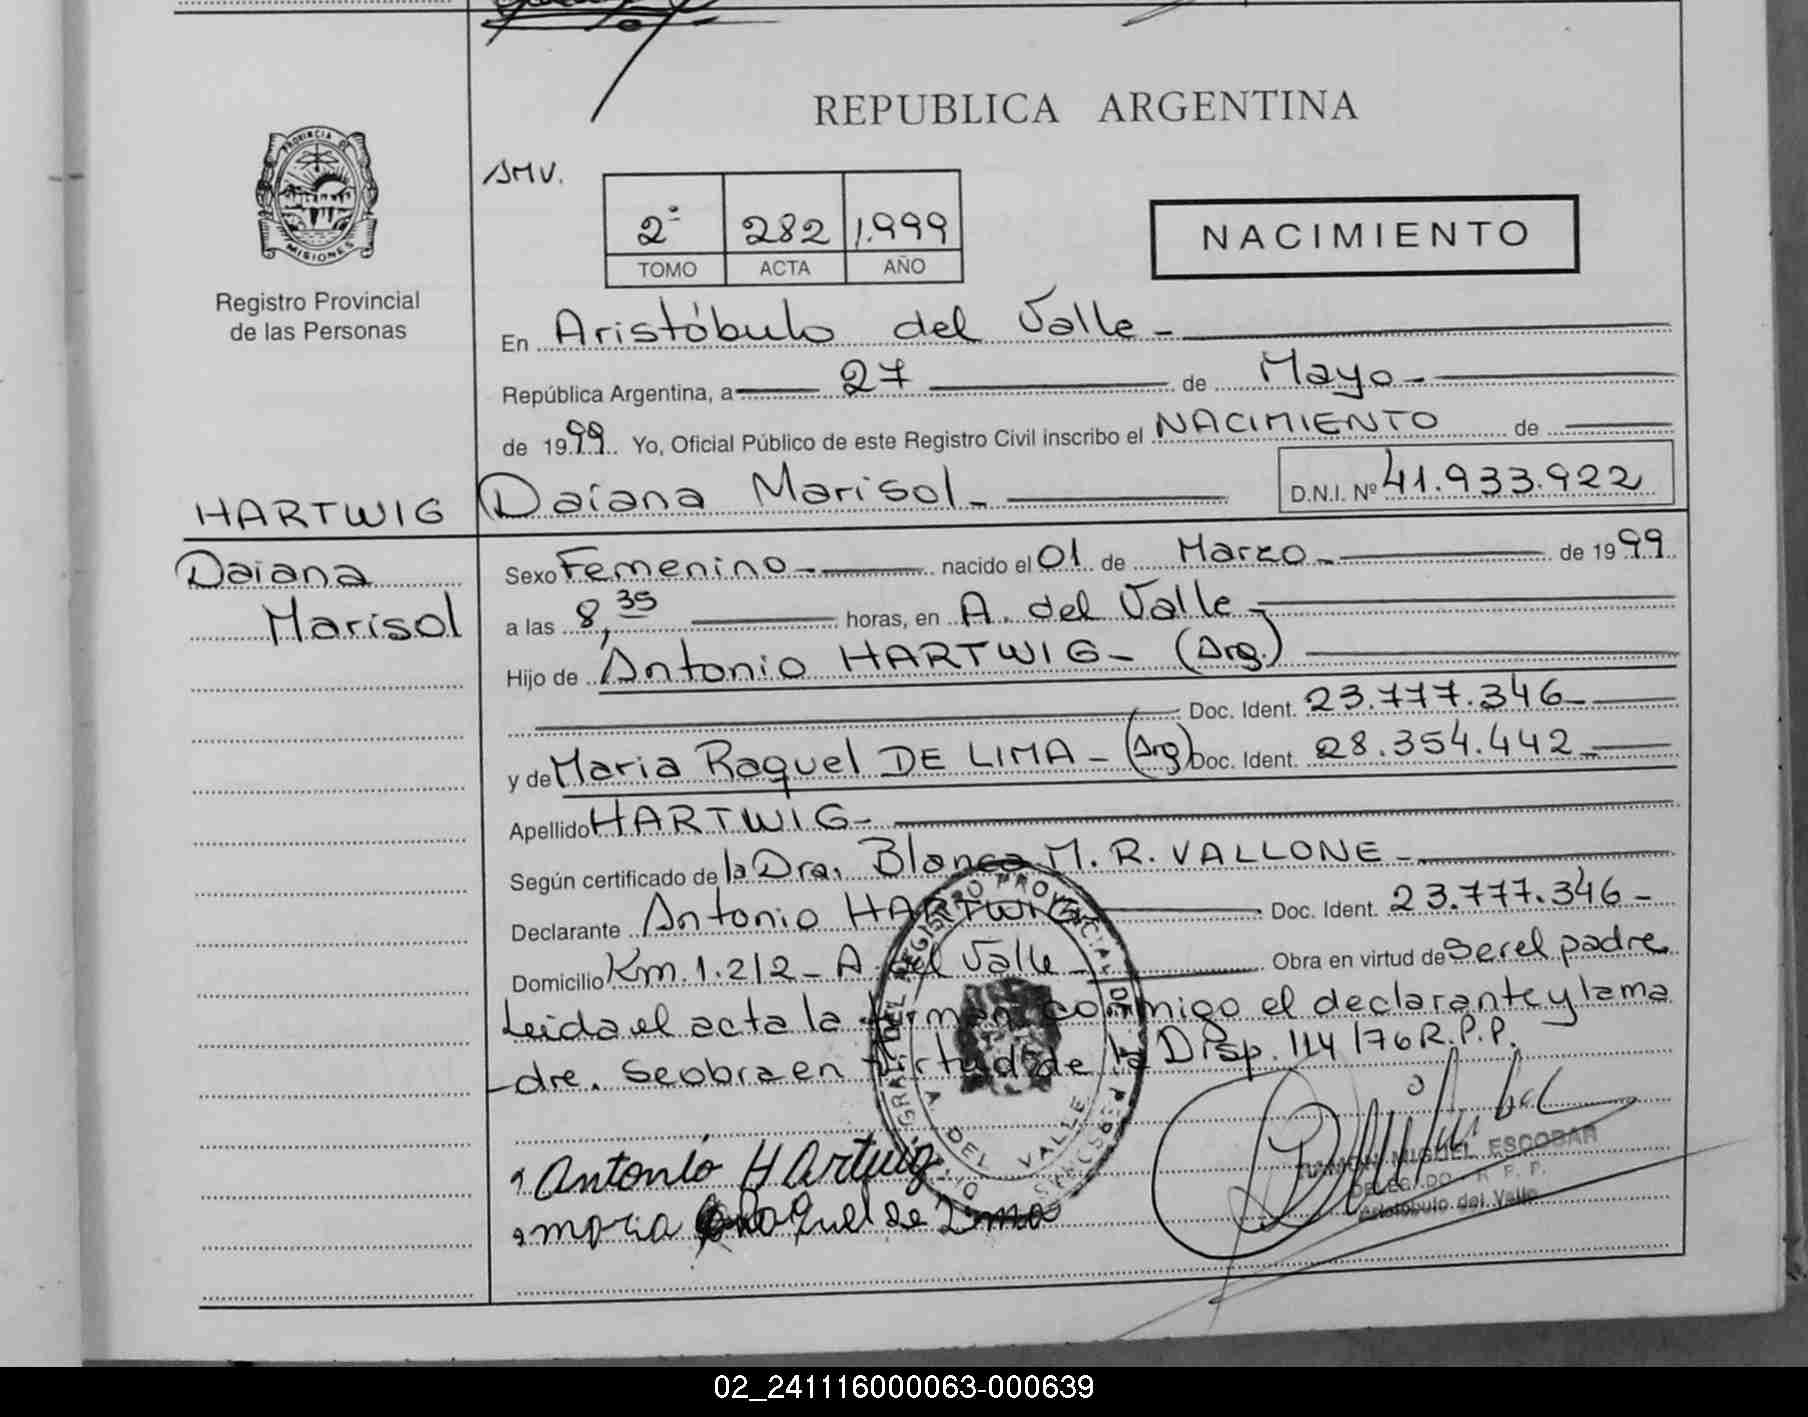 PROVINCIA DE
MISIONES
Registro Provincial
de las Personas
HARTWIG
Daiana
Marisol
REPUBLICA ARGENTINA
SMV.
2º 282 1.999
TOMO ACTA AÑO
NACIMIENTO
En Aristóbulo del Valle -
República Argentina, a 27 de Mayo -
de 1999 Yo, Oficial Público de este Registro Civil inscribo el NACIMIENTO de
Daiana Marisol - D.N.I. Nº 41.933.922
Sexo Femenino - nacido el 01 de Marzo - de 1999
a las 8,35 horas, en A. del Valle -
Hijo de Antonio HARTWIG - (Arg.)
Doc. Ident. 23.777.346 -
y de Maria Raquel DE LIMA - (Arg) Doc. Ident. 28.354.442 -
Apellido HARTWIG -
Según certificado de la Dra. Blanca M. R. VALLONE -
Declarante Antonio HARTWIG Doc. Ident. 23.777.346 -
Domicilio Km. 1.212 - A. del Valle - Obra en virtud de ser el padre
Leida el acta la firman conmigo el declarante y la ma
-dre. Se obra en virtud de la Disp. 114/76 R.P.P.
Antonio HArtwig
maria Raquel de Lima
A. DEL VALLE
RAMON MIGUEL ESCOBAR
DELEGADO R. P. P.
Aristóbulo del Valle
02_241116000063-000639